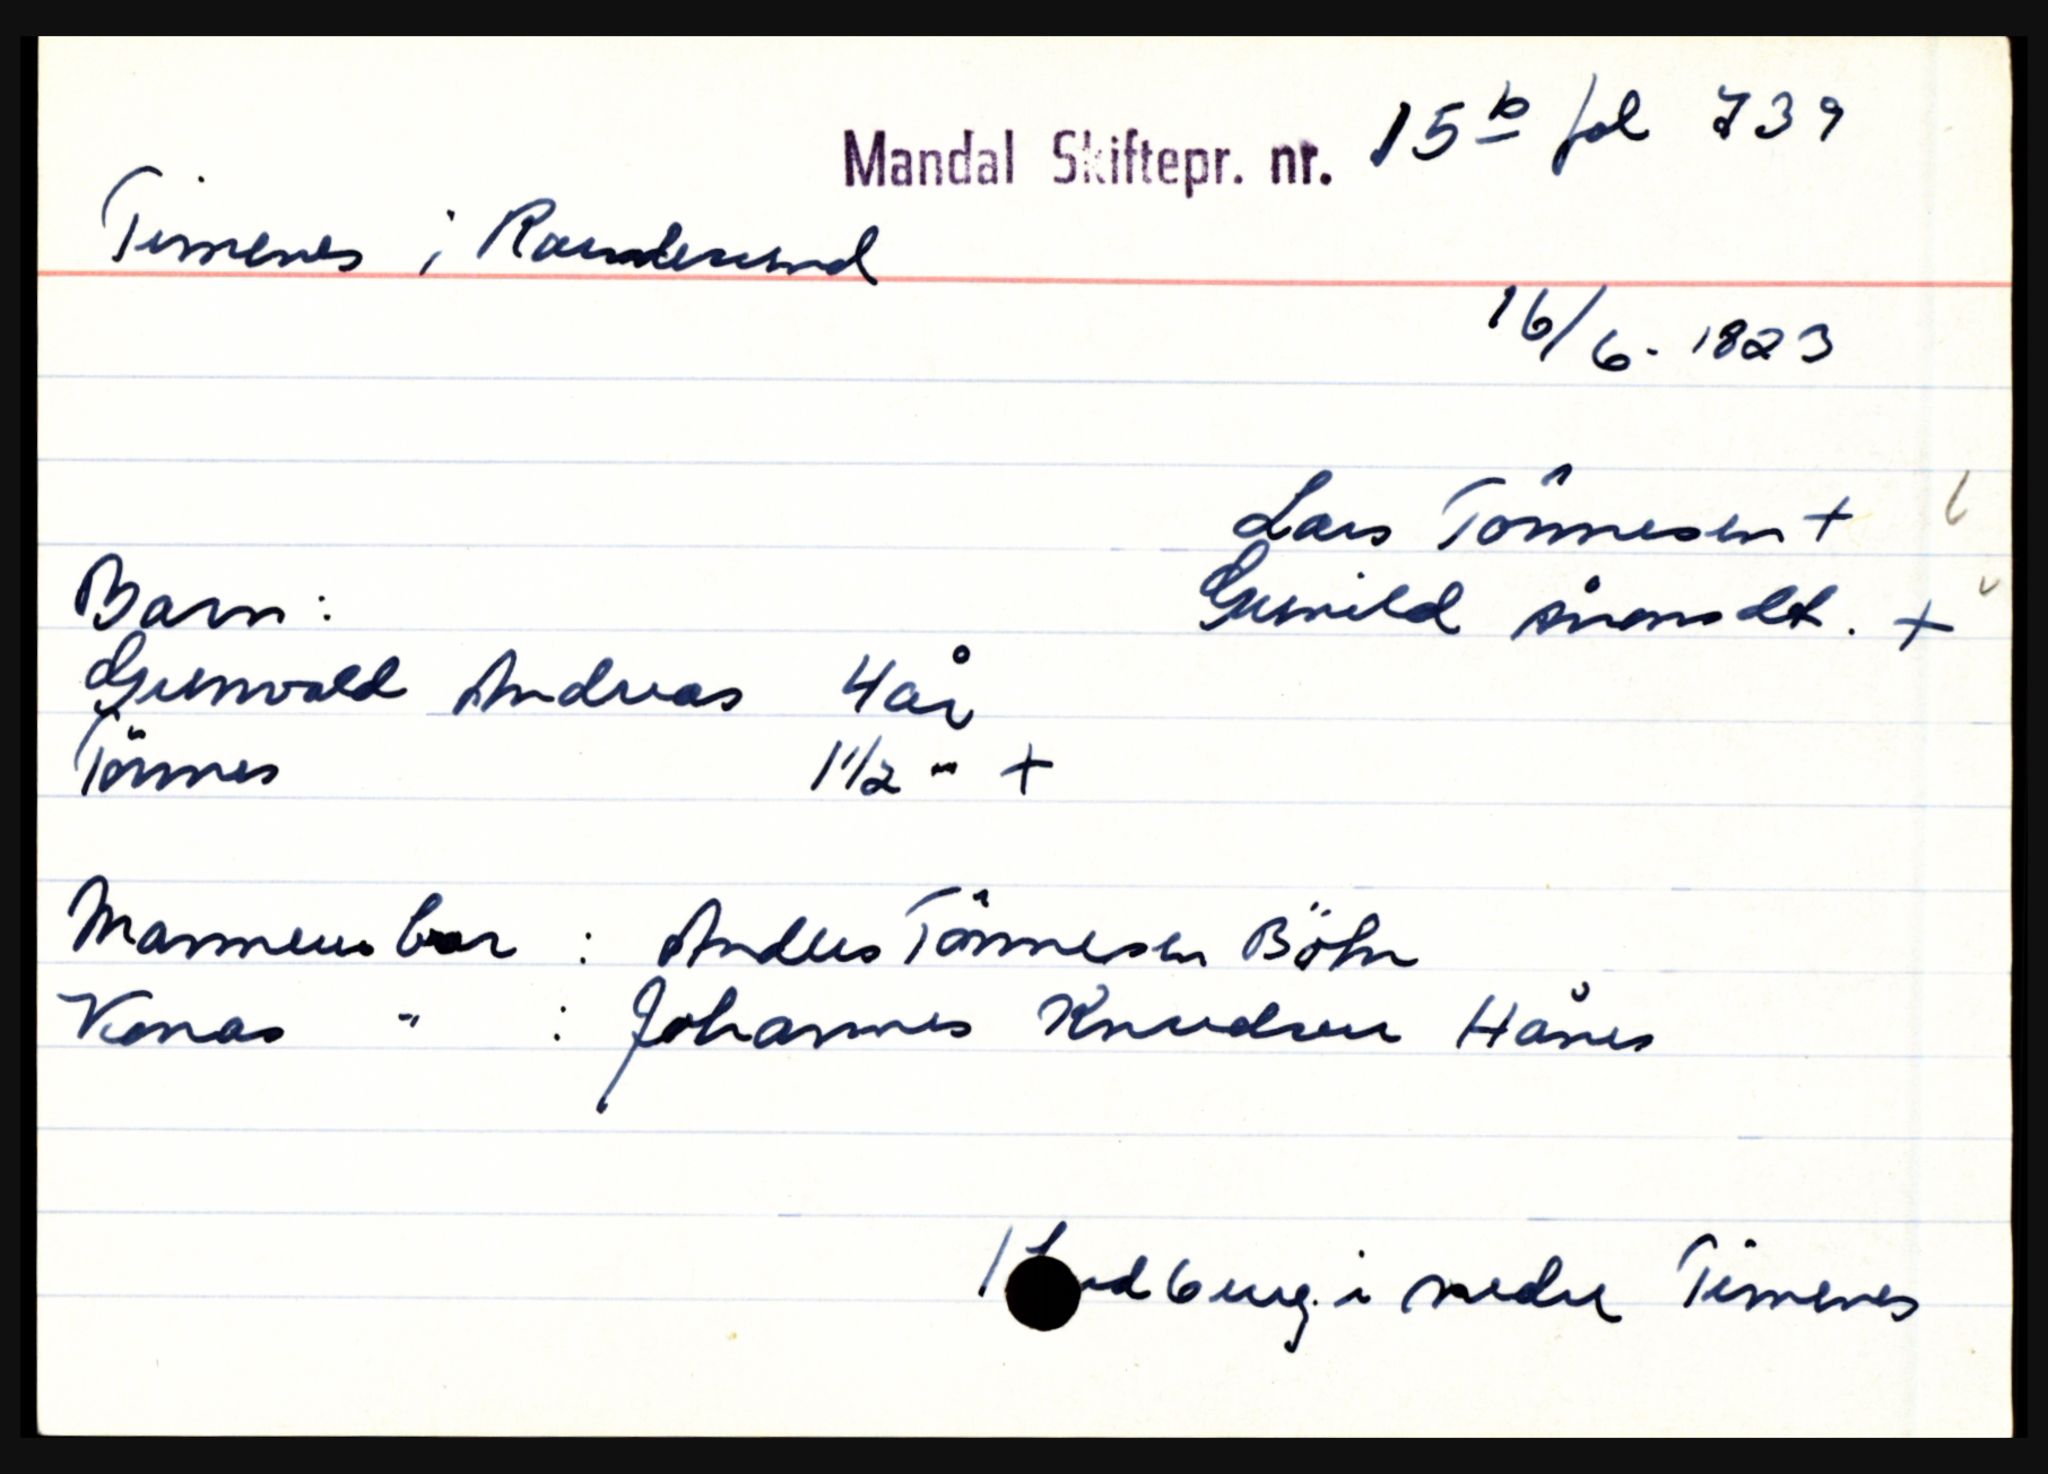 Mandal Skiftepr. nr. 15b fol 739
Timenes i Randesund
16/6-1823
Lars Tönnesen +
Barn:
Gunild Aanonsdt. +
Gunvald Andreas 4 år
Tönnes 1 1/2 " +
Mannens bror : Anders Tönnesen Böhn
Konas " : Johannes Knudsen Hånes
1 Hud 6 eng. i nedre Timenes